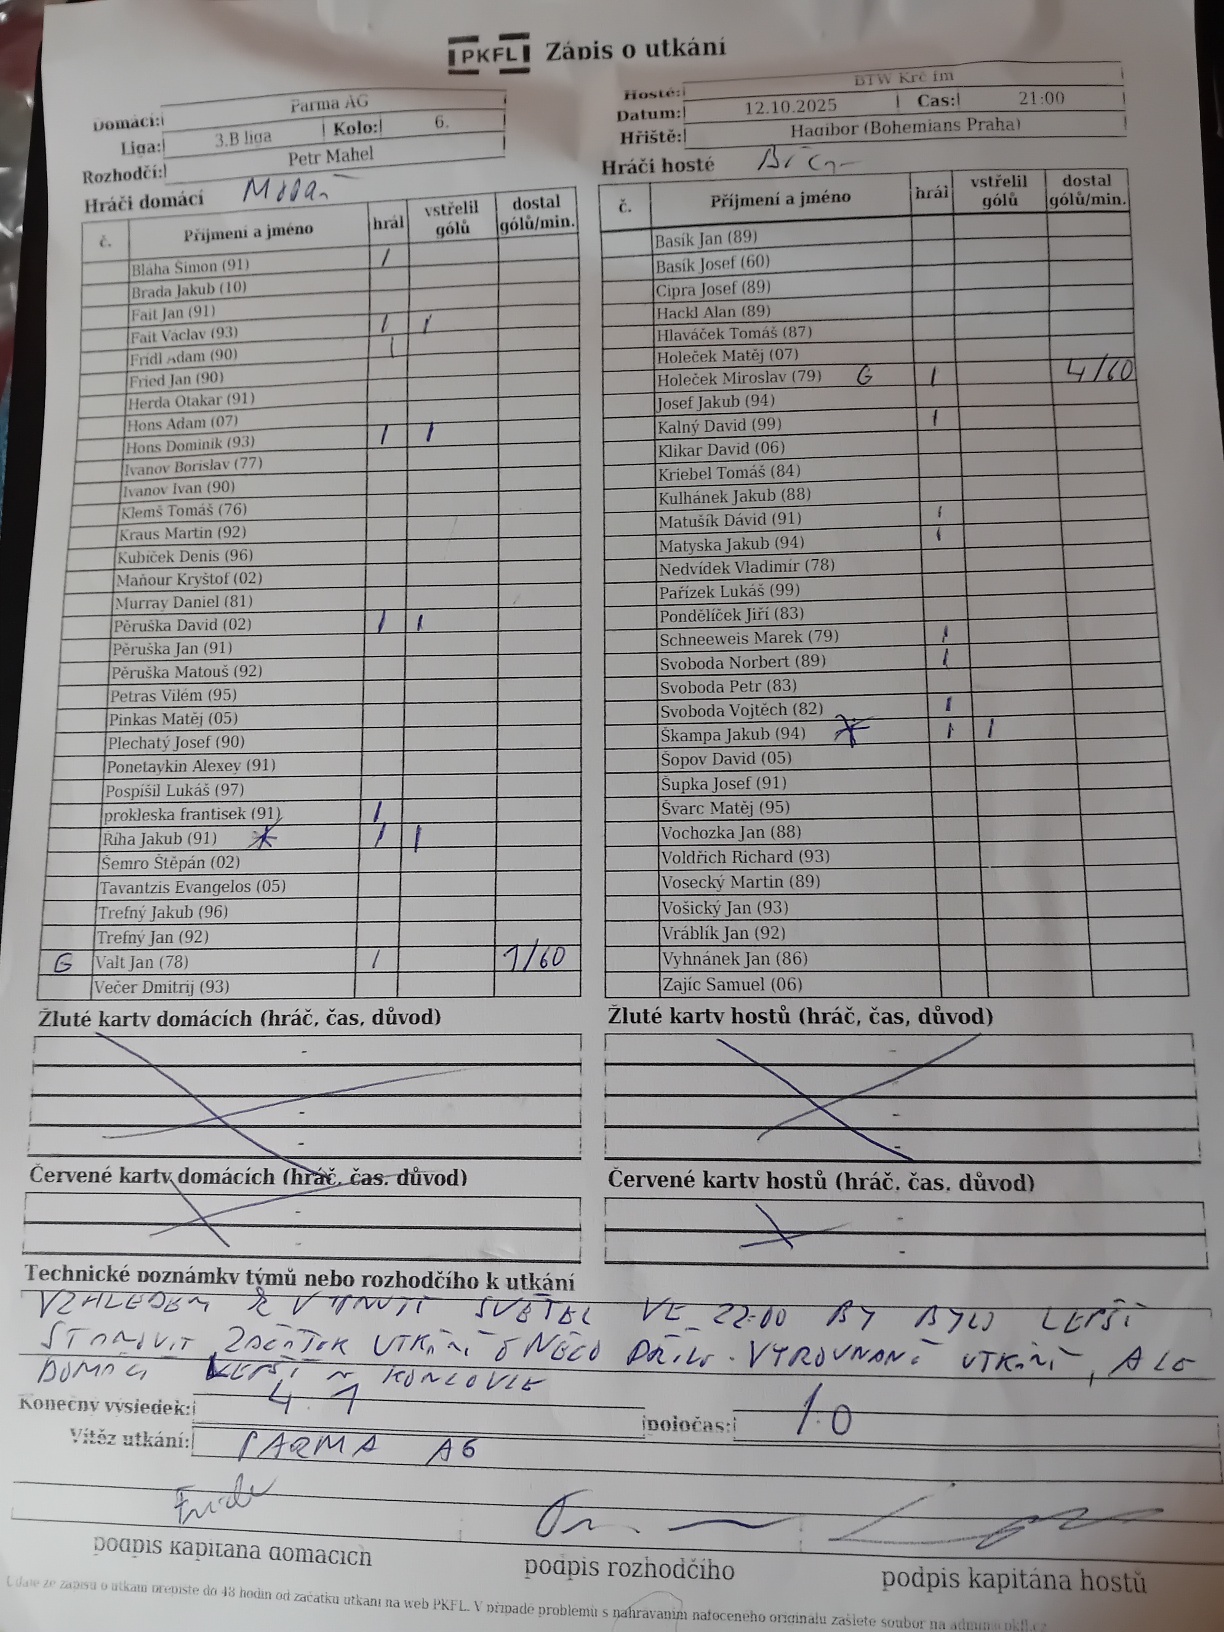 PKFL Zápis o utkání
Domácí: Parma AG
Liga: 3.B liga Kolo: 6.
Rozhodčí: Petr Mahel
Hosté: BTW Krč fm
Datum: 12.10.2025 Čas: 21:00
Hřiště: Hagibor (Bohemians Praha)
Hráči domácí
č. Příjmení a jméno hrál vstřelil gólů dostal gólů/min.
Bláha Šimon (91) /
Brada Jakub (10)
Fait Jan (91)
Fait Václav (93) / 1
Fridl Adam (90) /
Fried Jan (90)
Herda Otakar (91)
Hons Adam (07)
Hons Dominik (93) / 1
Ivanov Borislav (77)
Ivanov Ivan (90)
Klemš Tomáš (76)
Kraus Martin (92)
Kubíček Denis (96)
Maňour Kryštof (02)
Murray Daniel (81)
Pěruška David (02) / 1
Pěruška Jan (91)
Pěruška Matouš (92)
Petras Vilém (95)
Pinkas Matěj (05)
Plechatý Josef (90)
Ponetaykin Alexey (91)
Pospíšil Lukáš (97)
prokleska frantisek (91) /
Říha Jakub (91) * / 1
Šemro Štěpán (02)
Tavantzis Evangelos (05)
Trefný Jakub (96)
Trefný Jan (92)
G Valt Jan (78) / 1/60
Večer Dmitrij (93)
Hráči hosté
č. Příjmení a jméno hrál vstřelil gólů dostal gólů/min.
Basík Jan (89)
Basík Josef (60)
Cipra Josef (89)
Hackl Alan (89)
Hlaváček Tomáš (87)
Holeček Matěj (07)
Holeček Miroslav (79) G / 4/60
Josef Jakub (94)
Kalný David (99) /
Klikar David (06)
Kriebel Tomáš (84)
Kulhánek Jakub (88)
Matušík Dávid (91) /
Matyska Jakub (94) /
Nedvídek Vladimír (78)
Pařízek Lukáš (99)
Pondělíček Jiří (83)
Schneeweis Marek (79) /
Svoboda Norbert (89) /
Svoboda Petr (83)
Svoboda Vojtěch (82) /
Škampa Jakub (94) * / 1
Šopov David (05)
Šupka Josef (91)
Švarc Matěj (95)
Vochozka Jan (88)
Voldřich Richard (93)
Vosecký Martin (89)
Vošický Jan (93)
Vráblík Jan (92)
Vyhnánek Jan (86)
Zajíc Samuel (06)
Žluté karty domácích (hráč, čas, důvod)
-
-
-
Žluté karty hostů (hráč, čas, důvod)
-
-
-
Červené karty domácích (hráč, čas, důvod)
-
-
Červené karty hostů (hráč, čas, důvod)
-
-
Technické poznámky týmů nebo rozhodčího k utkání
VZHLEDEM K VYPNUTÍ SVĚTEL VE 22:00 BY BYLO LEPŠÍ
STANOVIT ZAČÁTEK UTKÁNÍ O NĚCO DŘÍVE. VYROVNANÉ UTKÁNÍ, ALE
DOMÁCÍ LEPŠÍ V KONCOVCE
Konečný výsledek: 4:1 poločas: 1:0
Vítěz utkání: PARMA AG
podpis kapitána domácích podpis rozhodčího podpis kapitána hostů
Údaje ze zápisu o utkání přepište do 48 hodin od začátku utkání na web PKFL. V případě problémů s nahráváním nafoceného originálu zašlete soubor na admin@pkfl.cz